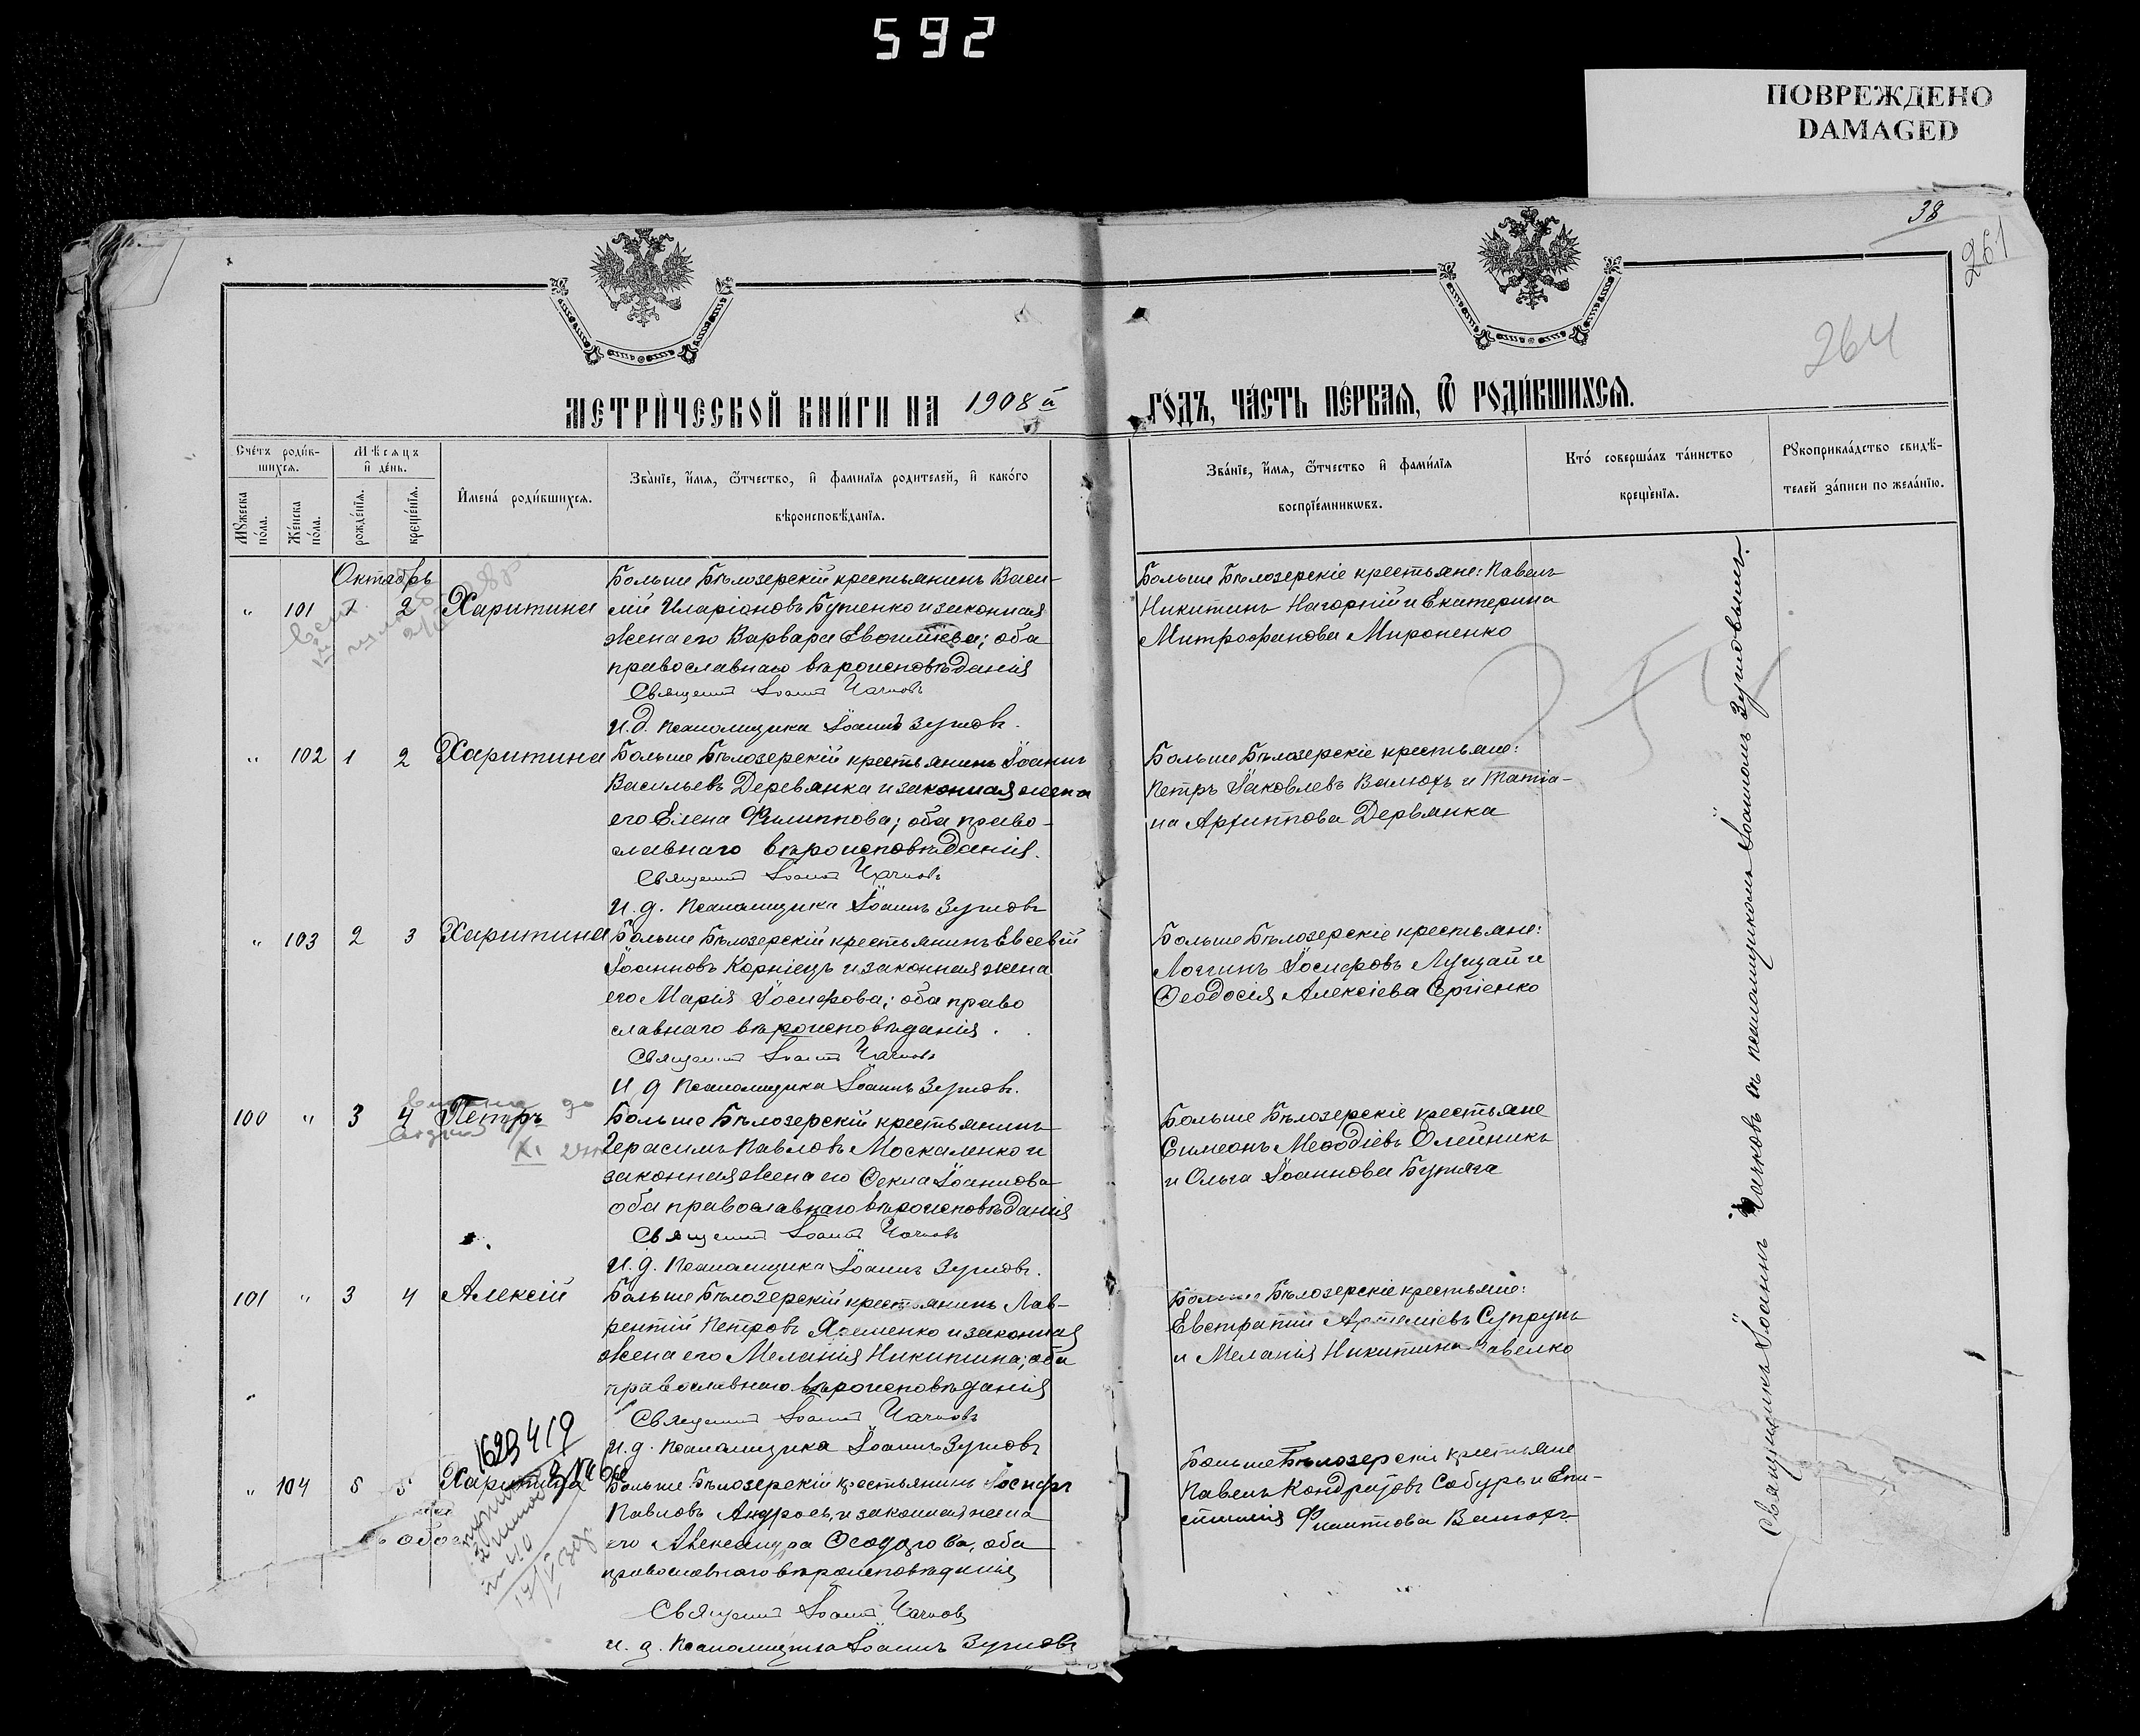 592
ПОВРЕЖДЕНО
DAMAGED
38
261
264
МЕТРИ́ЧЕСКОЙ КНИ́ГИ НА 1908й ГО́ДЪ, ЧА́СТЬ ПЕ́РВАЯ, Ѿ РОДИ́ВШИХСЯ.
Сче́тъ роди́в-
шихся.
Мꙋжеска по́ла.
Же́нска по́ла.
Мѣ́сяцъ
и҆ де́нь.
рожде́нїя.
креще́нїя.
И҆мена̀ роди́вшихся.
Зва́нїе, и҆́мя, ѻ҆́тчество, и҆ фами́лїя роди́телей, и҆ како́гѡ
вѣроисповѣ́данїя.
Зва́нїе, и҆́мя, ѻ҆́тчество и҆ фами́лїя
воспрїе́мникѡвъ.
Кто́ соверша́лъ та́инство
креще́нїя.
Рꙋкоприкла́дство свидѣ́-
телей за́писи по жела́нїю.
Октябрь
" 101 1 2 Харитина
Больше Бѣлозерскій крестьянинъ Васи-
лій Иларіоновъ Бутенко и законная
жена его Варвара; оба
православнаго вѣроисповѣданія
Священ Іоаннъ Чачковъ
И.д. псаломщика Іоаннъ
Больше Бѣлозерскіе крестьяне: Павелъ
Никитинъ Нагорній и Екатерина
Митрофанова Мироненко
" 102 1 2 Харитина
Больше Бѣлозерскій крестьянинъ Іоаннъ
Васильевъ Деревянка и законная жена
его Елена Филиппова; оба право-
славнаго вѣроисповѣданія.
Священ Іоаннъ Чачковъ
И.д. псаломщика Іоаннъ
Больше Бѣлозерскіе крестьяне:
Петръ Іаковлевъ Валюхъ и Татіа-
на Архиппова Дервянка
" 103 2 3 Харитина
Больше Бѣлозерскій крестьянинъ Евсевій
Іоанновъ Корніецъ и законная жена
его Марія Іосифова; оба право
славнаго вѣроисповѣданія.
Священ Іоаннъ Чачковъ
И д псаломщика Іоаннъ
Больше Бѣлозерскіе крестьяне:
Логгинъ Іосифовъ Луцай и
Ѳеодосія Алексіева Сергіенко
100 " 3 4 Петръ
Больше Бѣлозерскій крестьянинъ
Герасимъ Павловъ Москаленко и
законная жена его Ѳекла Іоаннова
оба православнаго вѣроисповѣданія
Священ Іоаннъ Чачковъ
И.д. псаломщика Іоаннъ
Больше Бѣлозерскіе крестьяне
Симеонъ Меѳодіевъ Олейникъ
и Ольга Іоаннова
101 " 3 4 Алексій
Больше Бѣлозерскій крестьянинъ Лав-
рентій Петровъ и законная
жена его Меланія Никитина; оба
православнаго вѣроисповѣданія
Священ Іоаннъ Чачковъ
И.д. псаломщика Іоаннъ
Больше Бѣлозерскіе крестьяне:
Евстратій Артеміевъ Супрунъ
и Меланія Никитина
1623419
" 104 5 5 Харитина
Больше Бѣлозерскій крестьянинъ Іосифъ
Павловъ Андрось, и законная жена
его Александра Ѳеодорова, оба
православнаго вѣроисповѣданія
Священ Іоаннъ Чачковъ
И.д. псаломщика Іоаннъ
Больше Бѣлозерскіе крестьяне
Павелъ Кондратовъ Собуръ и Епи-
стимія Филиппова Валюхъ
Священникъ Іоаннъ Чачковъ съ псаломщикомъ Іоанномъ